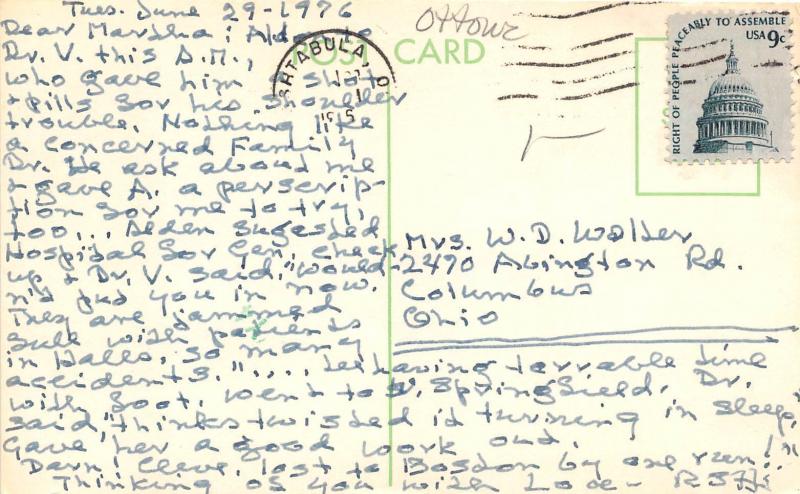 Tues. June 29-1976
Dear Martha: Alden to
Dr. V. this A.M.,
who gave him a shot
+ pills for his shoulder
trouble. Nothing like
a concerned Family
Dr. He ask about me
+ gave A. a perscrip-
tion for me to try,
too... Alden sugested
Hospital for Gen. check
up + Dr. V. said, "would-
n't put you in now.
They are jammed
full with patients
in Halls, so many
accidents."....
having terrable time
with foot. went to
Springfield. Dr.
said, "thinks twisted it turning in sleep,"
Gave her a good work out.
Darn Cleve. lost to Boston by one run!!"
Thinking of you with Love-
POST CARD
ASHTABULA, O
RIGHT OF PEOPLE PEACEABLY TO ASSEMBLE
USA 9c
Mrs. W. D. Walter
2470 Abington Rd.
Columbus
Ohio